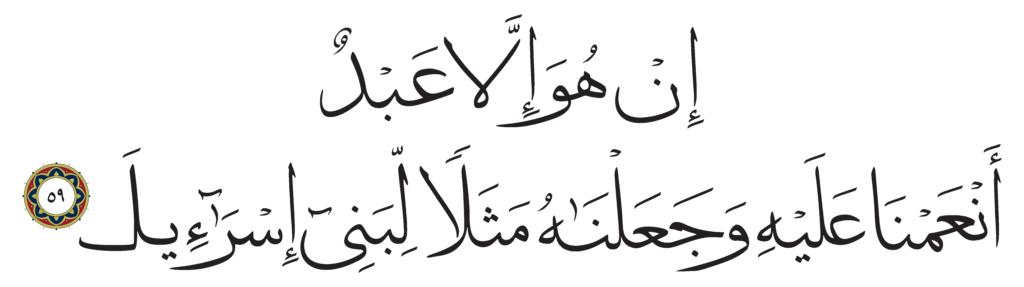 إِنْ هُوَ إِلَّا عَبْدٌ
أَنْعَمْنَا عَلَيْهِ وَجَعَلْنَٰهُ مَثَلًا لِّبَنِىٓ إِسْرَٰٓءِيلَ ٥٩